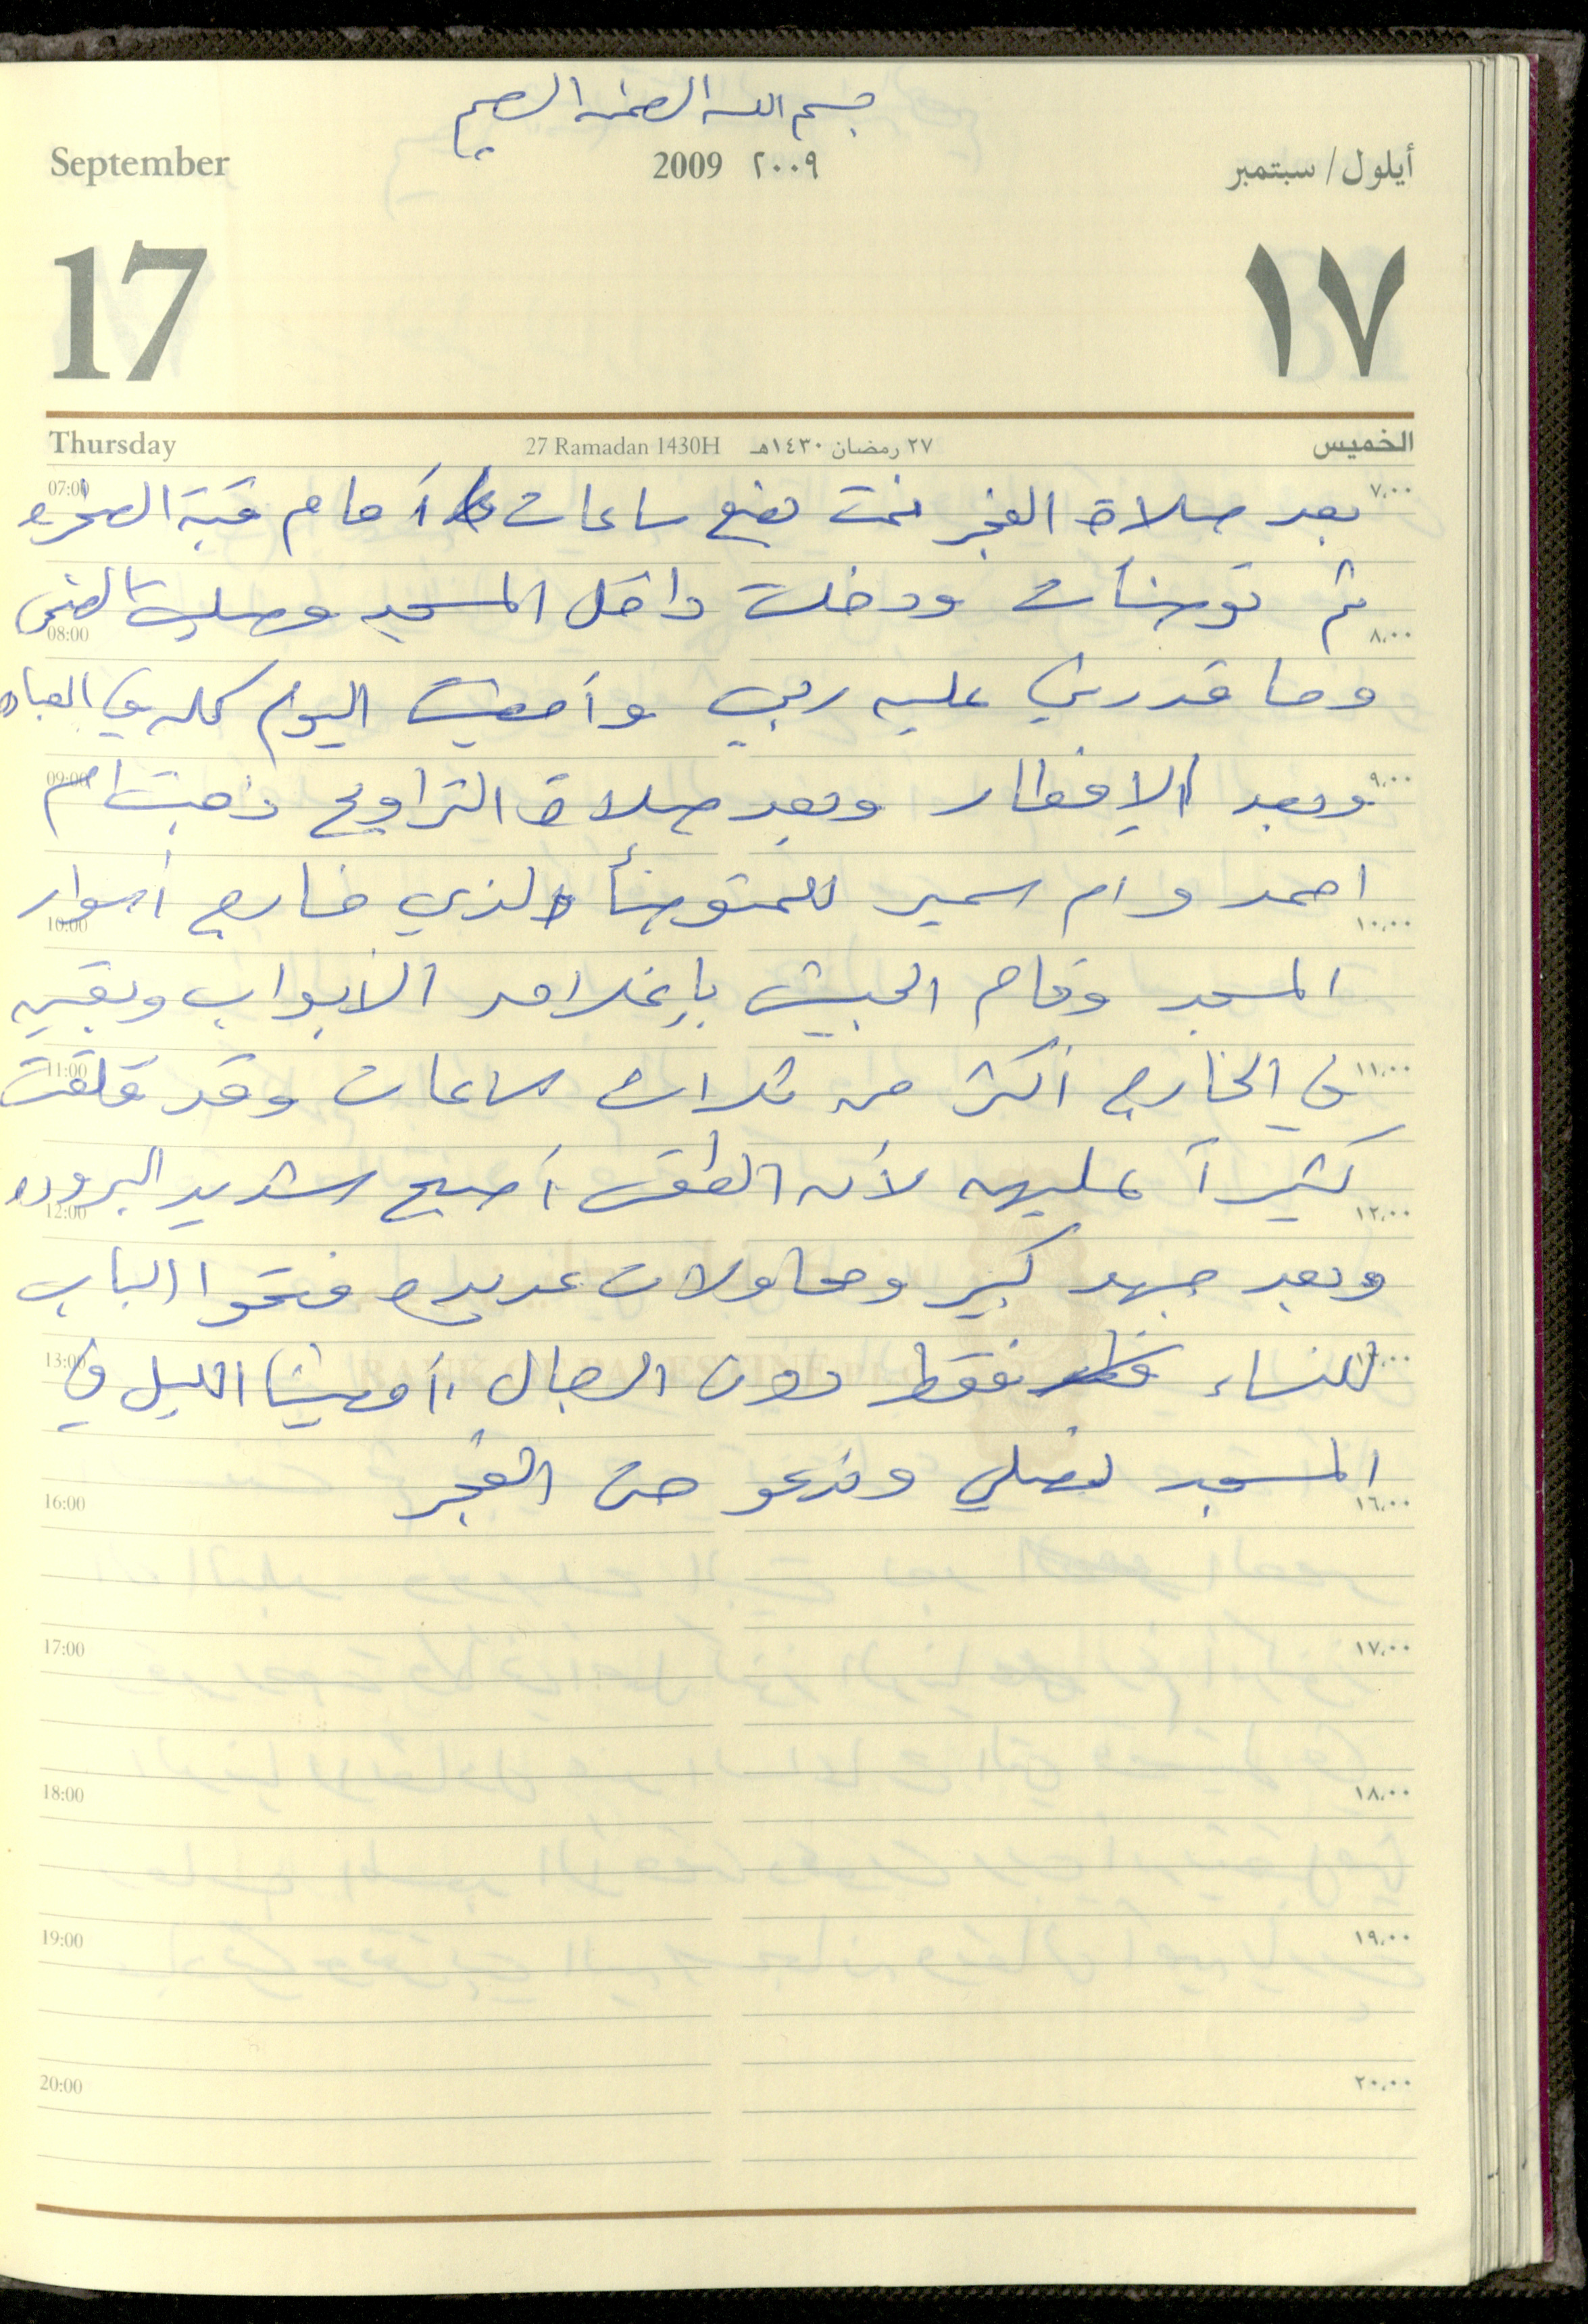 بسم الله الرحمن الرحيم
September 2009 ٢٠٠٩ أيلول/سبتمبر
17 ١٧
Thursday 27 Ramadan 1430H ٢٧ رمضان ١٤٣٠هـ الخميس
07:00 ٧,٠٠
بعد صلاة الفجر نمت بضع ساعات أمام قبة الصخره
ثم توضأت ودخلت داخل المسجد وصليت الضحى
08:00 ٨,٠٠
وما قدرني عليه ربي وأمضيت اليوم كله في العباده
09:00 ٩,٠٠
وبعد الإفطار وبعد صلاة التراويح ذهبت ام
احمد وام سمير للمتوضأ الذي خارج أسوار
10:00 ١٠,٠٠
المسجد وقام الجيش بإغلاق الأبواب وبقين
11:00 ١١,٠٠
في الخارج أكثر من ثلاث ساعات وقد قلقت
كثيرآ عليهن لأن الطقس أصبح شديد البروده
12:00 ١٢,٠٠
وبعد جهد كبير ومحاولات عديده فتحوا الباب
13:00
BANK OF PALESTINE
للنساء فقط دون الرجال . أمضينا الليل في
المسجد نصلي وندعو حتى الفجر
16:00 ١٦,٠٠
17:00 ١٧,٠٠
18:00 ١٨,٠٠
19:00 ١٩,٠٠
20:00 ٢٠,٠٠